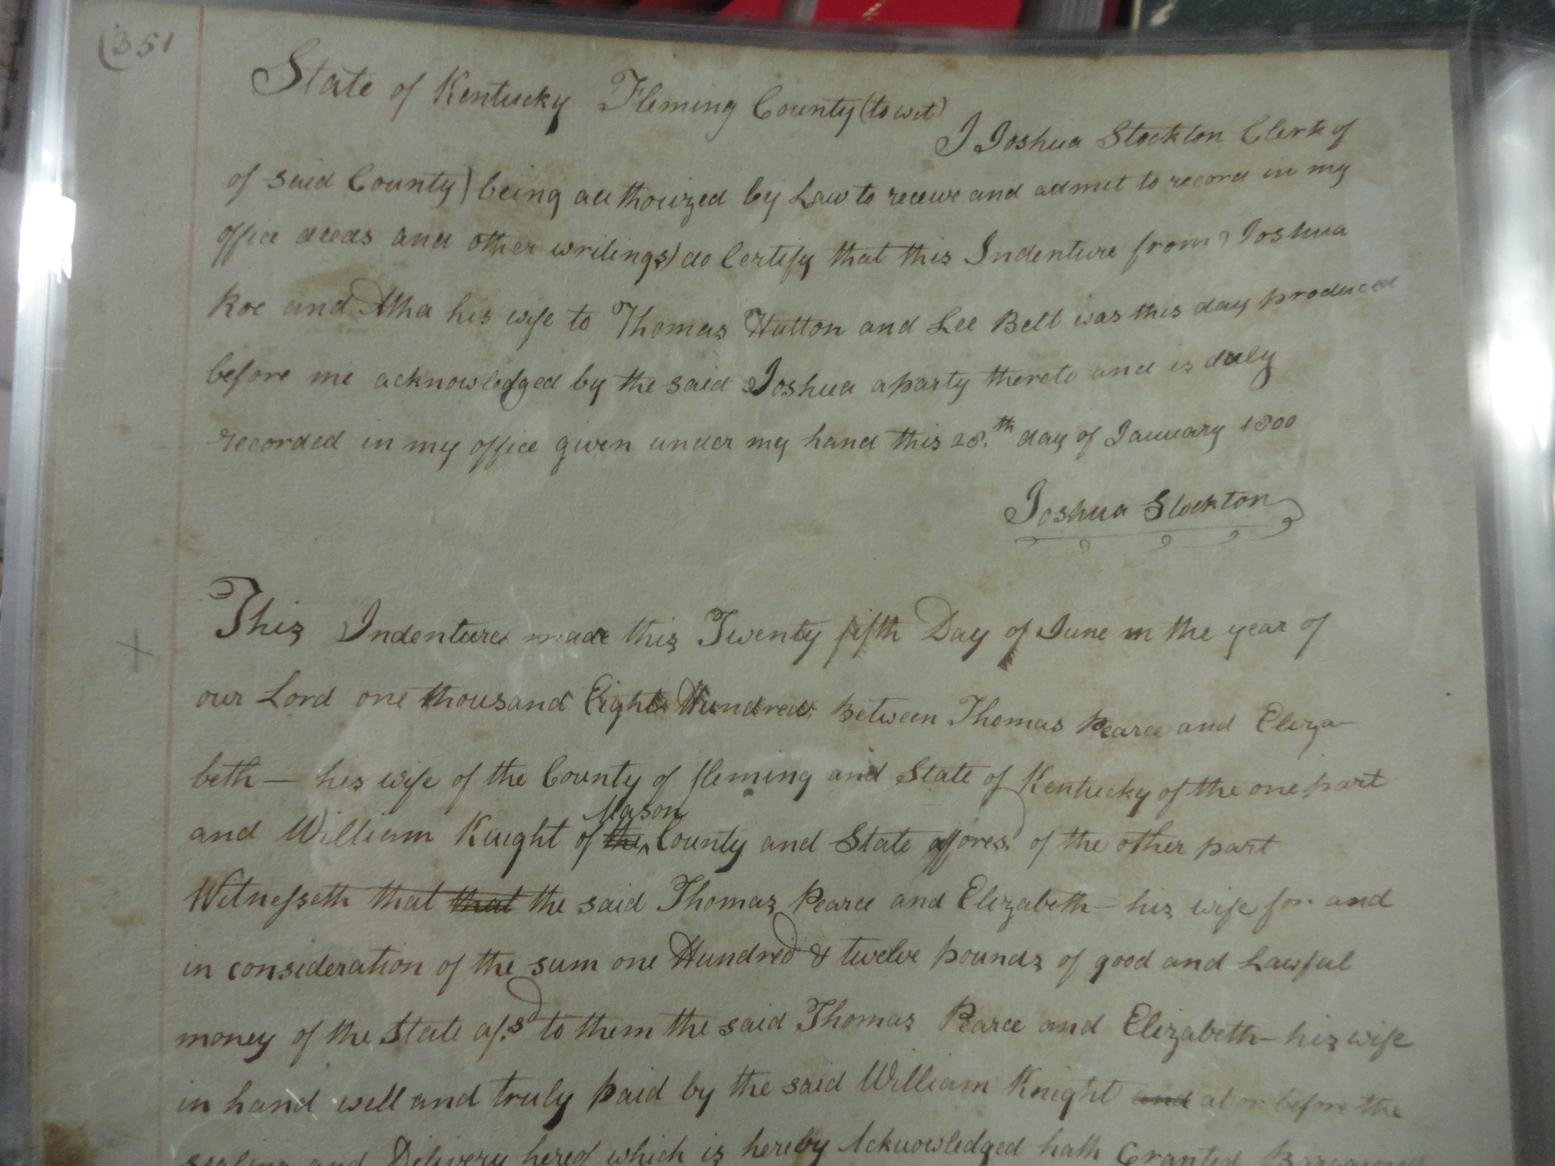 (351
State of Kentucky Fleming County (to wit)
I Joshua Stockton Clerk of
of said County) being authorized by Law to receive and admit to record in my
office deeds and other writings) do Certify that this Indenture from Joshua
Roe and his wife to Thomas Hutton and Lee Belt was this day produced
before me acknowledged by the said Joshua a party thereto and is duly
recorded in my office given under my hand this 28.th day of January 1800
Joshua Stockton
This Indenture made this Twenty fifth Day of June in the year of
our Lord one thousand Eight Hundred Between Thomas Pearce and Eliza-
beth — his wife of the County of fleming and State of Kentucky of the one part
Mason
and William Knight of the County and State affores.d of the other part
Witnesseth that that the said Thomas Pearce and Elizabeth — his wife for and
in consideration of the sum one Hundred & twelve pounds of good and Lawful
money of the State afs.d to them the said Thomas Pearce and Elizabeth — his wife
in hand well and truly paid by the said William Knight and at or before the
sealing and Delivery hereof which is hereby Acknowledged hath Granted Bargained